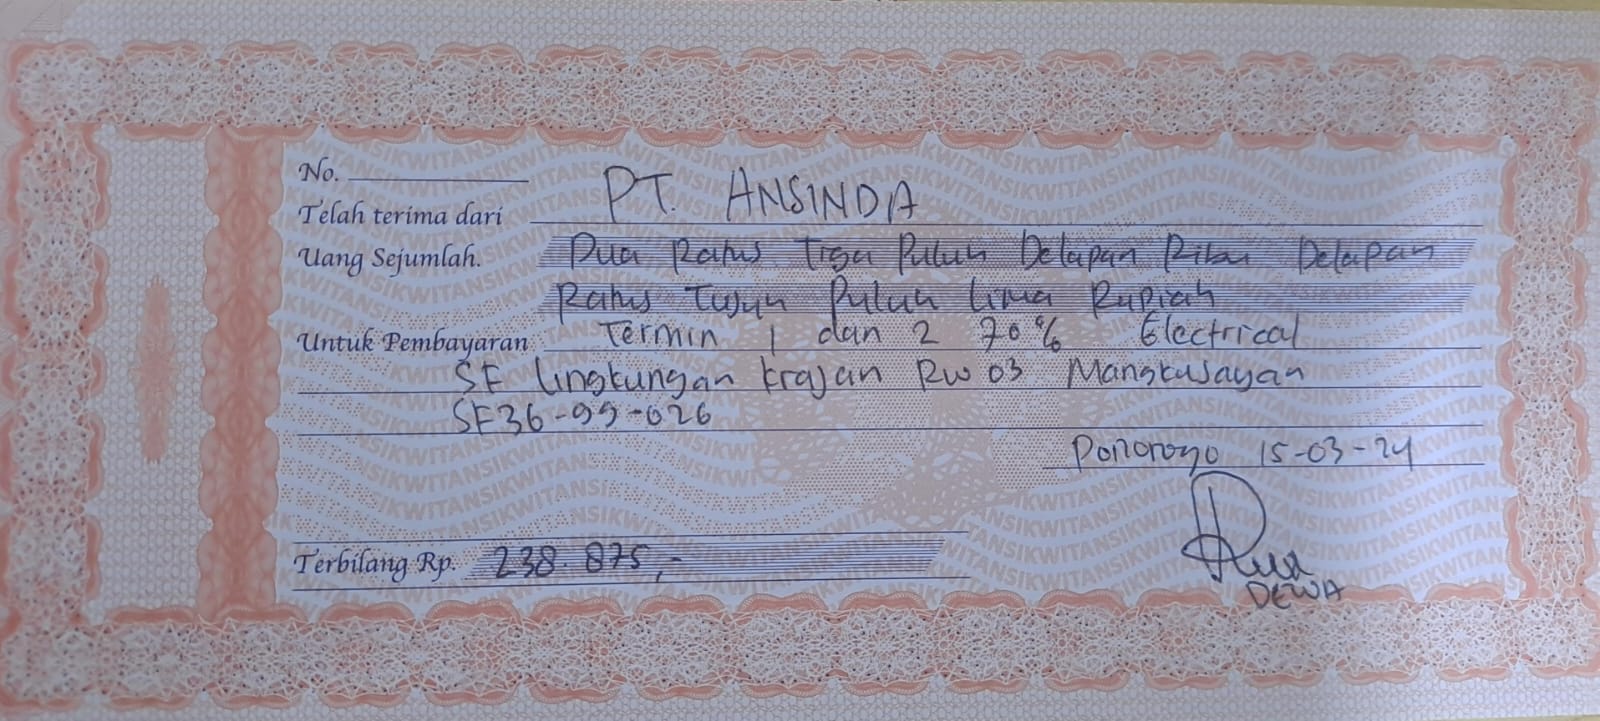 No.
Telah terima dari PT. ANSINDA
Uang Sejumlah. Dua Ratus Tiga Puluh Delapan Ribu Delapan
Ratus Tujuh Puluh Lima Rupiah
Untuk Pembayaran Termin 1 dan 2 70% Electrical
SF lingkungan krajan RW 03 Mangkujayan
SF36-99-026
Ponorogo 15-03-24
Terbilang Rp. 238.875,-
DEWA